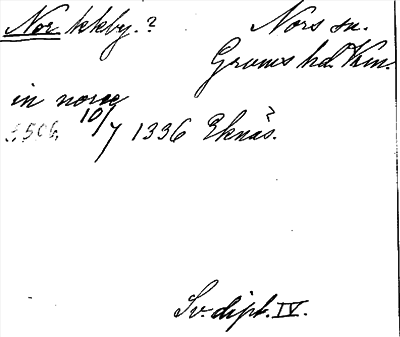 Nor kkby.?
Nors sn.
Grums hd. Vrm.
in noræ
10/7 1336 Eknäs.
Sv. dipl. IV.